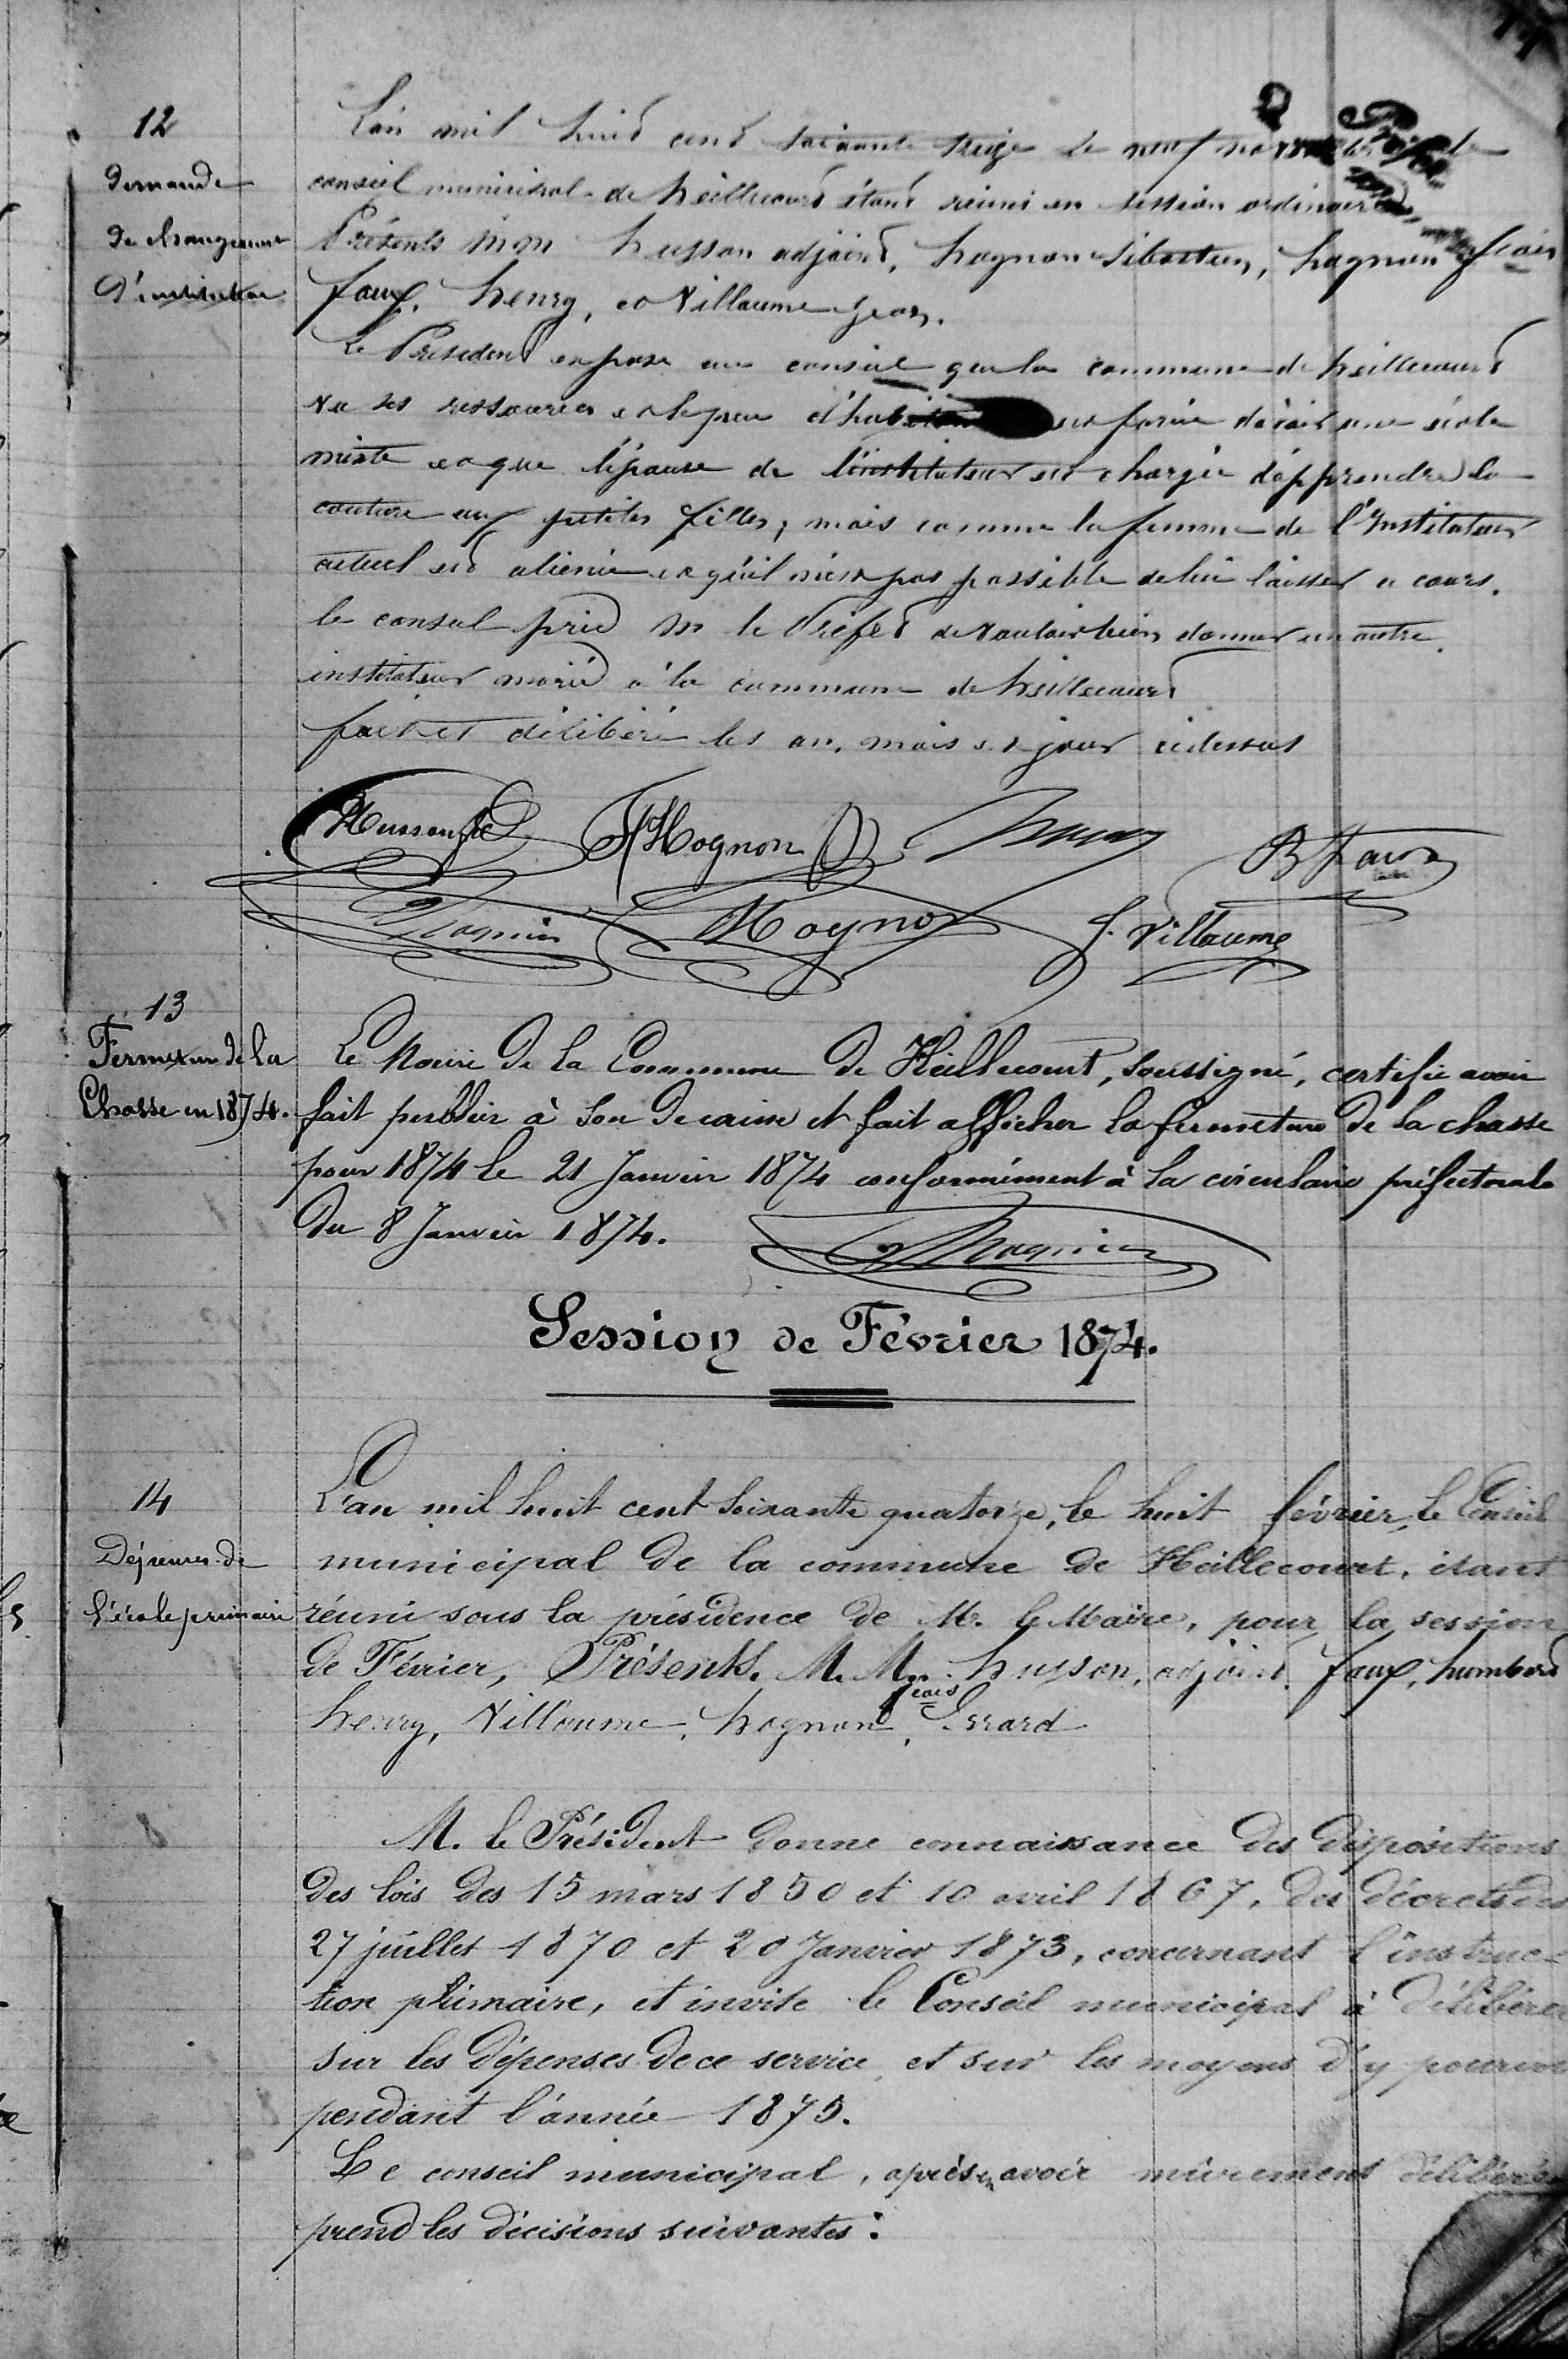 12
demande
de changement
d'instituteur
L'an mil huit cent soixante treize le neuf novembre le
conseil municipal de heillecourt étant réuni en session ordinaire
Présents MM husson adjoint, hognon Sébastien, hognon fcois
faux, henry, et Villaume Jean.
Le Président expose au conseil que la commune de heillecourt
vu ses ressources et le peu d'habitants est forcée d'avoir une école
mixte et que l'épouse de l'instituteur est chargée d'apprendre la
couture aux petites filles, mais comme la femme de l'Instituteur
actuel est aliénée et qu'il n'est pas possible de lui laisser ce cours.
le conseil prie Mr le Préfet de vouloir bien donner un autre
instituteur marié à la commune de heillecourt
fait et délibéré les an, mois et jour cidessus
Husson FHognon henry B Faux
Hognon J. Villaume
13
Fermeture de la
Chasse en 1874.
Le Maire de la Commune de Heillecourt, soussigné, certifie avoir
fait publier à son de caisse et fait afficher la fermeture de la chasse
pour 1874 le 21 Janvier 1874 conformément à la circulaire préfectorale
du 8 Janvier 1874.
Session de Février 1874.
14
Dépenses de
l'école primaire
L'an mil huit cent soixante quatorze, le huit février, le Conseil
municipal de la commune de Heillecourt, étant
réuni sous la présidence de Mr. le Maire, pour la session
de Février, Présents. M.M. husson, adjoint. faux, humbert
henry, Villaume, hognon fcois, Errard
M. le Président donne connaissance des dispositions
des lois des 15 mars 1850 et 10 avril 1867, des décrets des
27 juillet 1870 et 20 Janvier 1873, concernant l'instruc-
tion primaire, et invite le Conseil municipal à délibérer
sur les dépenses de ce service et sur les moyens d'y pourvoir
pendant l'année 1875.
Le conseil municipal, après en avoir mûrement délibéré
prend les décisions suivantes :